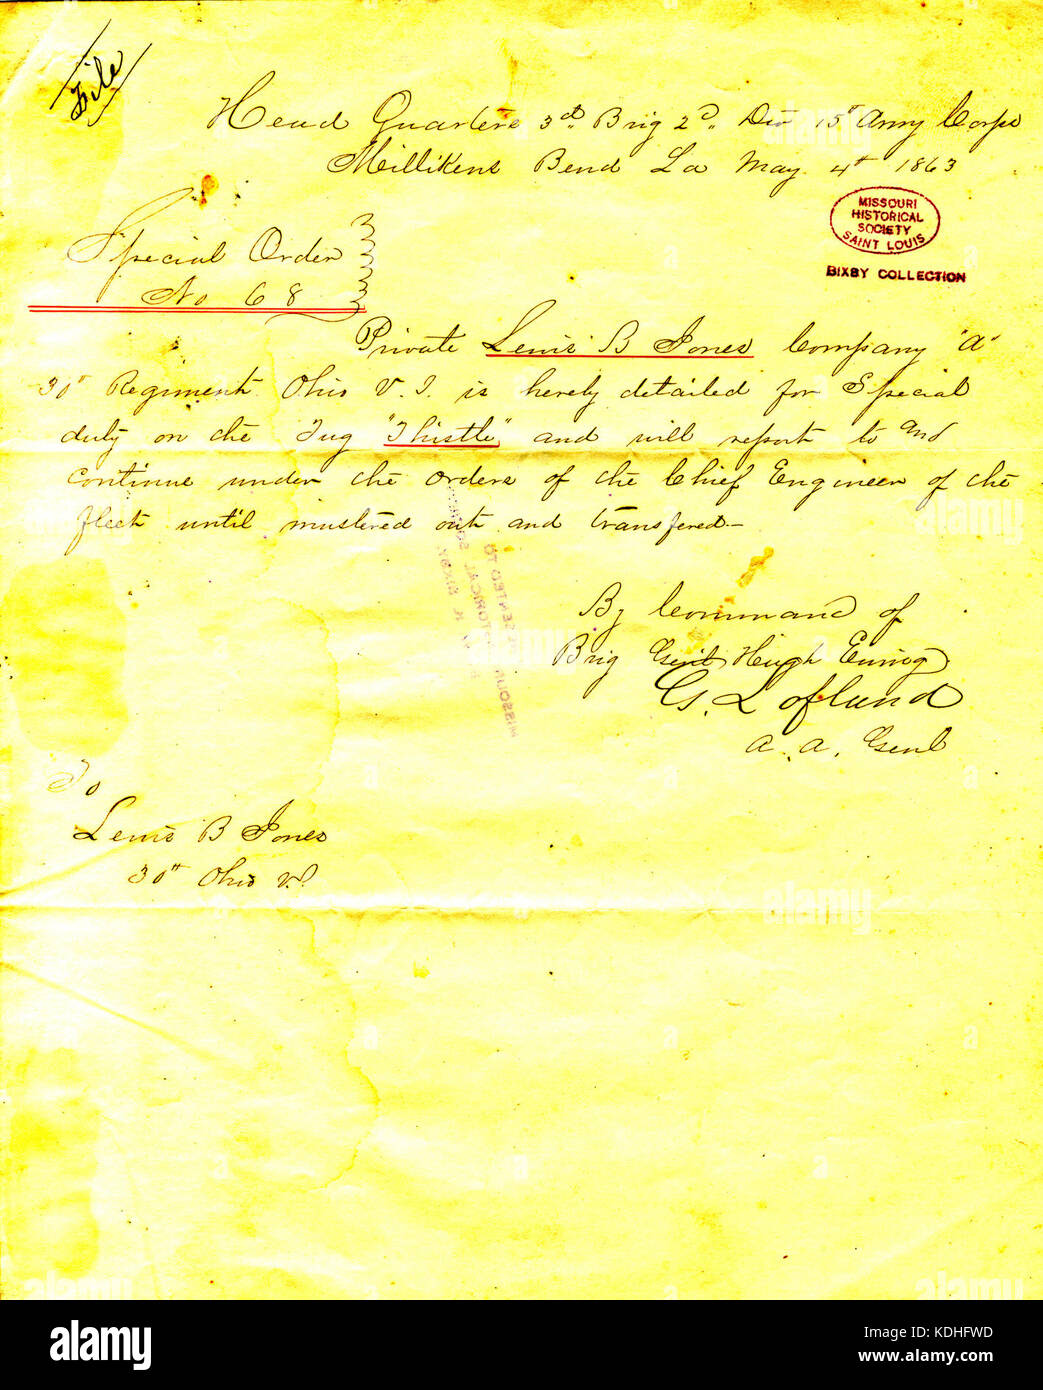 File
Head Quarters 3d. Brig 2d. Div 15th Army Corps
Millikens Bend La May 4th 1863
MISSOURI
HISTORICAL
SOCIETY
SAINT LOUIS
BIXBY COLLECTION
Special Order
No 68
Private Lewis B Jones Company "A"
30th Regiment Ohio V. I. is hereby detailed for Special
duty on the Tug "Thistle" and will report to and
continue under the orders of the Chief Engineer of the
fleet until mustered out and transfered—
PRESENTED TO
MISSOURI HISTORICAL SOCIETY
BIXBY
By Command of
Brig Genl Hugh Ewing
G. Lofland
A. A. Genl
To
Lewis B Jones
30th Ohio V.I.
alamy
Image ID: KDHFWD
www.alamy.com